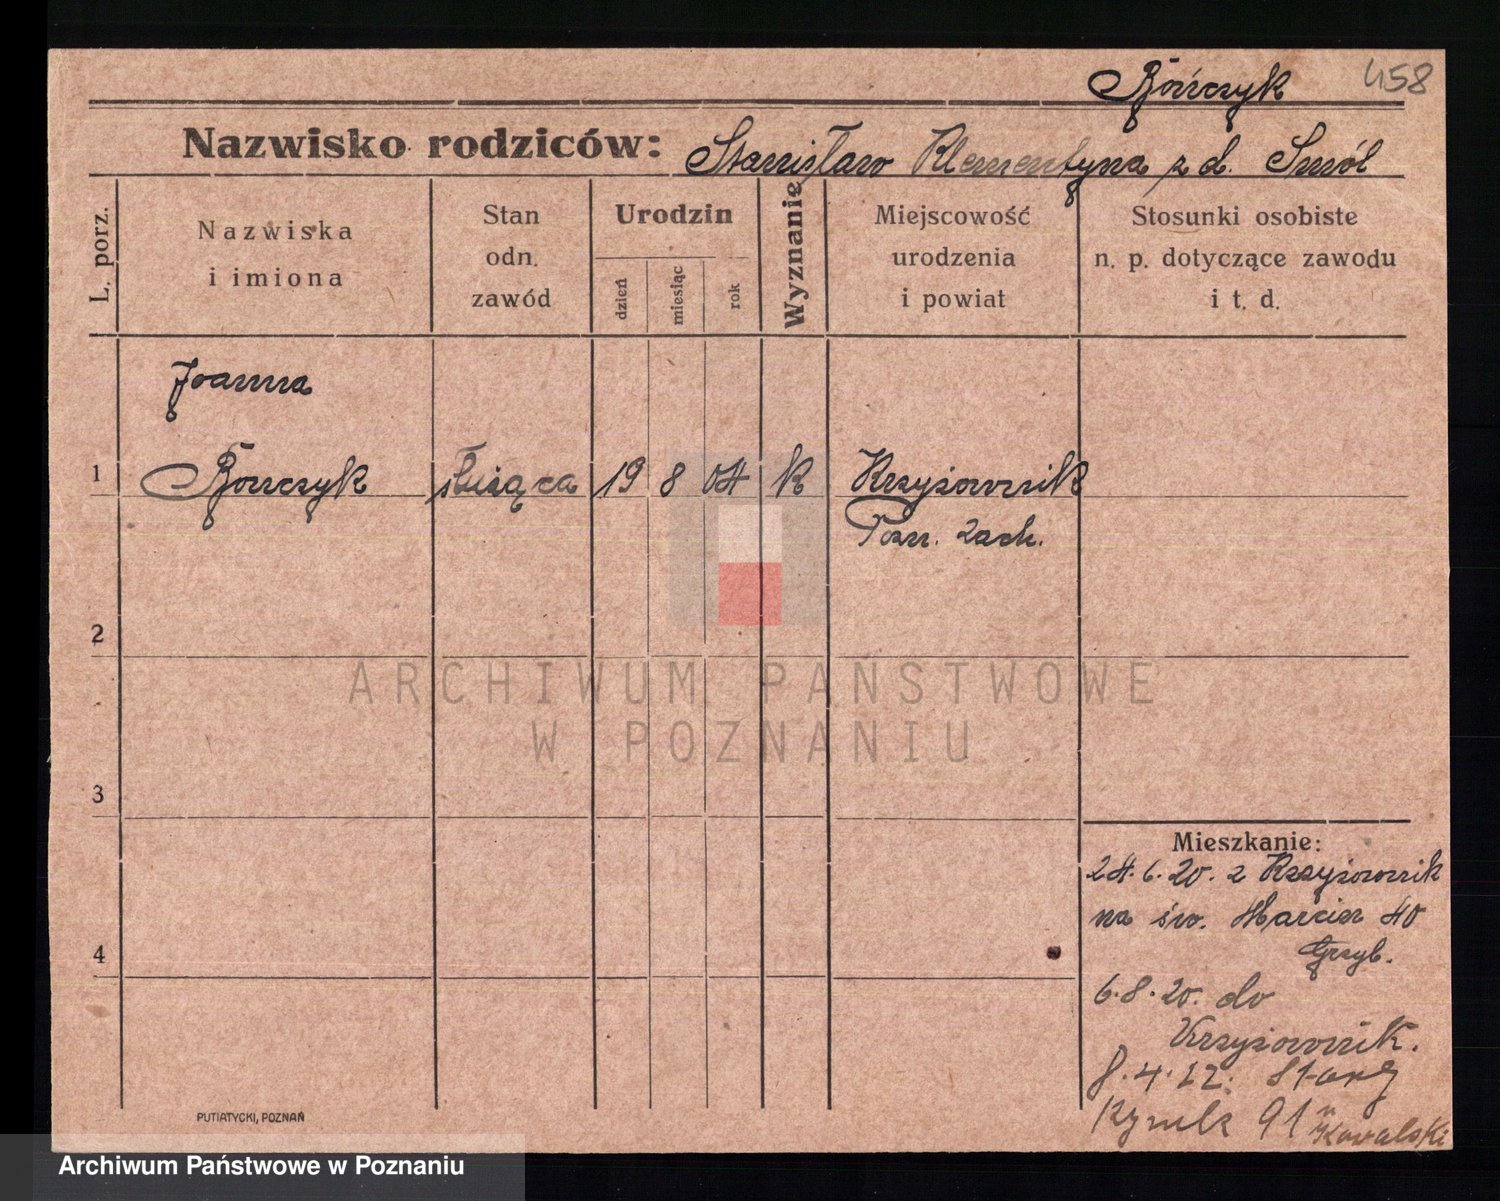 Bończyk 458
Nazwisko rodziców: Stanisław Klementyna z d. Smól
L. porz.
Nazwiska
i imiona
Stan
odn.
zawód
Urodzin
dzień
miesiąc
rok
Wyznanie
Miejscowość
urodzenia
i powiat
Stosunki osobiste
n. p. dotyczące zawodu
i t. d.
Joanna
1 Bończyk służąca 19 8 04 k Krzyżownik
Pozn. Zach.
2
3
4
Mieszkanie:
24.6.20. z Krzyżownik
na św. Marcin 40
Grzyb.
6.8.20. do
Krzyżownik.
8.4.22. Stary
Rynek 91 u Kowalski
PUTIATYCKI, POZNAŃ
ARCHIWUM PAŃSTWOWE
W POZNANIU
Archiwum Państwowe w Poznaniu